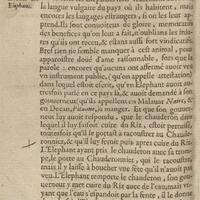 Elephant.
la langue vulgaire du pays où ils habitent, mais
encores les langages estrangers, si on les leur ap-
prend. Ils sont conuoiteux de gloire, memoratifs
des benefices qu'on leur a fait, n'oublians les iniu-
res qu'ils ont receu, & estans aussi fort vindicatifs.
Bref rien ne semble manquer à cest animal, pour
apparoistre doué d'ame raisonnable, fors que la
parole: encores qu'aucuns ont affermé auoir veu
vn instrument public, (qu'on appelle attestation)
dans lequel estoit escrit, qu'vn Elephant auoit vne
fois mis parlé en ce pays là, & auoit demandé à son
gouuerneur (qu'ils appellent en Malauar Naire, &
en Decan, Piluane,) à manger. Et que son gouuer-
neur luy auoit respondu, que le chauderon dans
lequel il luy faisoit cuire du Ris, estoit pertuisé,
toutesfois qu'il le portait à racoustrer au Chaude-
ronnier, & qu'il luy feroit puis apres cuire du Ris.
L'Elephant ayant pris le chauderon auec sa trom-
pe, le porte au Chauderonnier, qui le racoustra
mais il y laisse à boucher vne fête qu'il n'auoit pas
veu. L'Elephant remporte le chauderon, son gou-
uerneur y met cuire du Ris auec de l'eau, mais